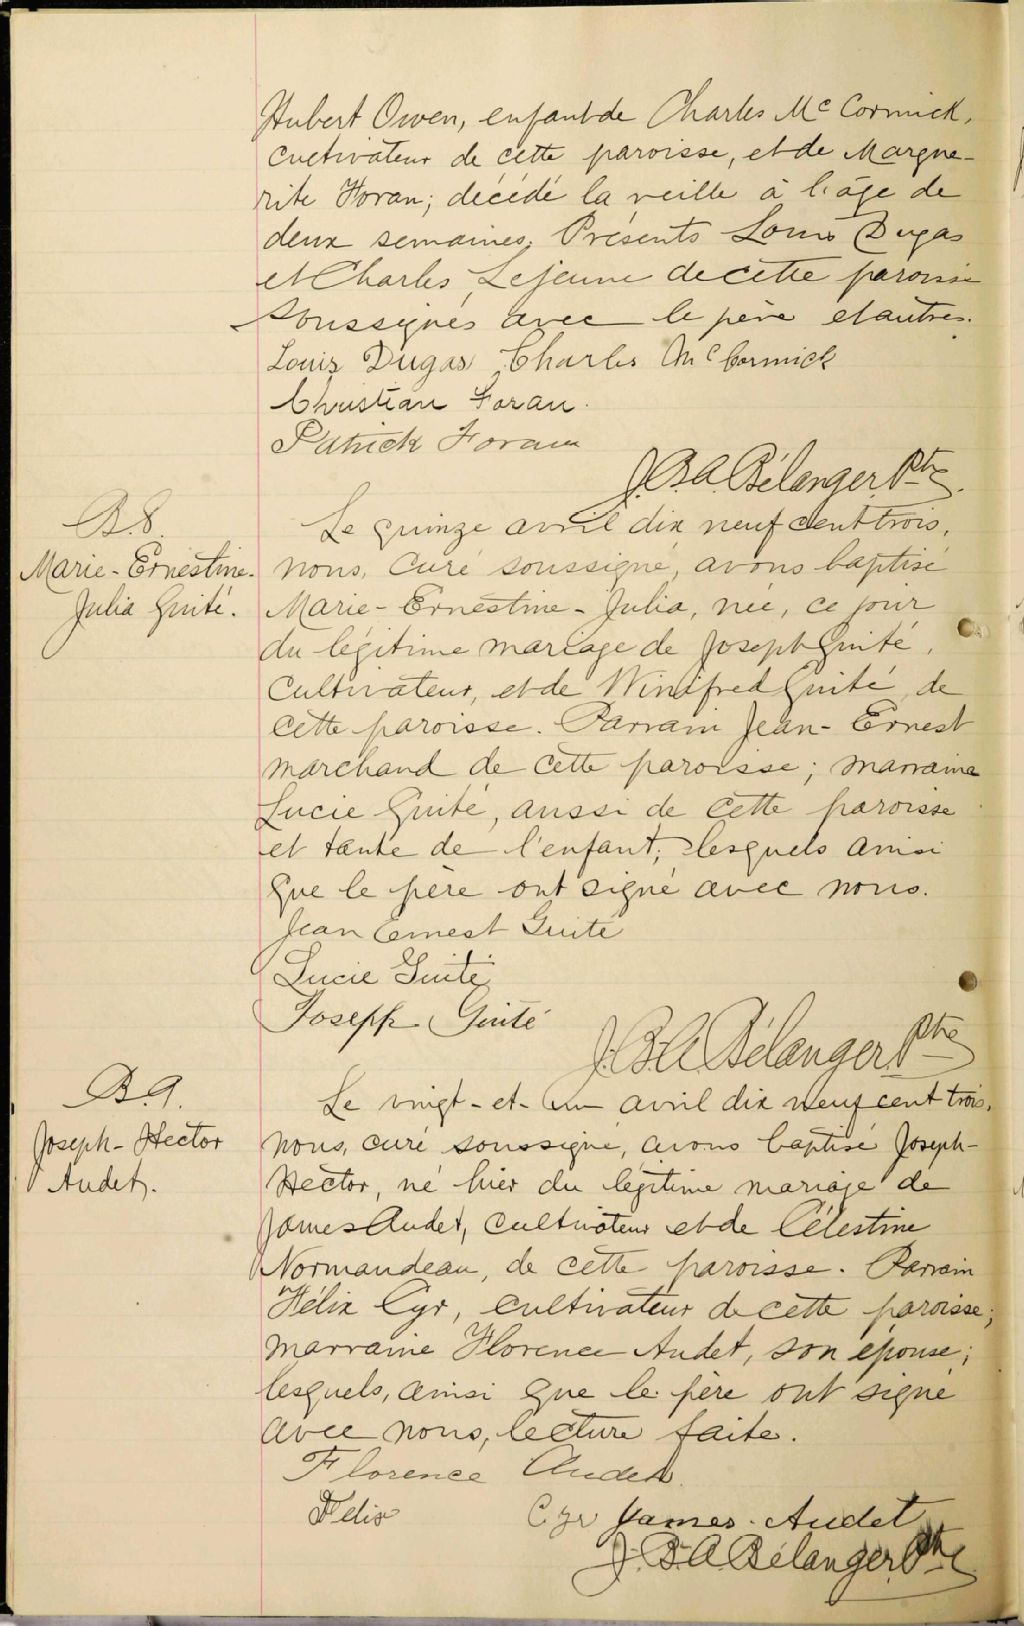 Hubert Owen, enfant de Charles Mc Cormick,
cultivateur de cette paroisse, et de Margue-
rite Horan; décédé la veille à l'âge de
deux semaines. Présents Louis Dugas
et Charles Lejeune de cette paroisse
soussignés avec le père et autres.
Louis Dugas Charles McCormick
Christian Foran.
Patrick Foran
J.B.A. Bélanger, Ptre.
B.8.
Marie-Ernestine-
Julia Guité.
Le quinze avril dix neuf cent trois,
nous, curé soussigné, avons baptisé
Marie-Ernestine-Julia, née, ce jour
du légitime mariage de Joseph Guité,
cultivateur, et de Winifred Guité, de
cette paroisse. Parrain Jean-Ernest
marchand de cette paroisse; marraine
Lucie Guité, aussi de cette paroisse
et tante de l'enfant; lesquels ainsi
que le père ont signé avec nous.
Jean Ernest Guité
Lucie Guité
Joseph Guité
J.B.A. Bélanger, Ptre
B.9.
Joseph-Hector
Audet.
Le vingt-et-un avril dix neuf cent trois,
nous, curé soussigné, avons baptisé Joseph-
Hector, né hier du légitime mariage de
James Audet, cultivateur et de Célestine
Normandeau, de cette paroisse. Parrain
Félix Cyr, cultivateur de cette paroisse;
marraine Florence Audet, son épouse;
lesquels, ainsi que le père ont signé
avec nous, lecture faite.
Florence Audet
Felix Cyr James Audet
J.B.A. Bélanger, Ptre